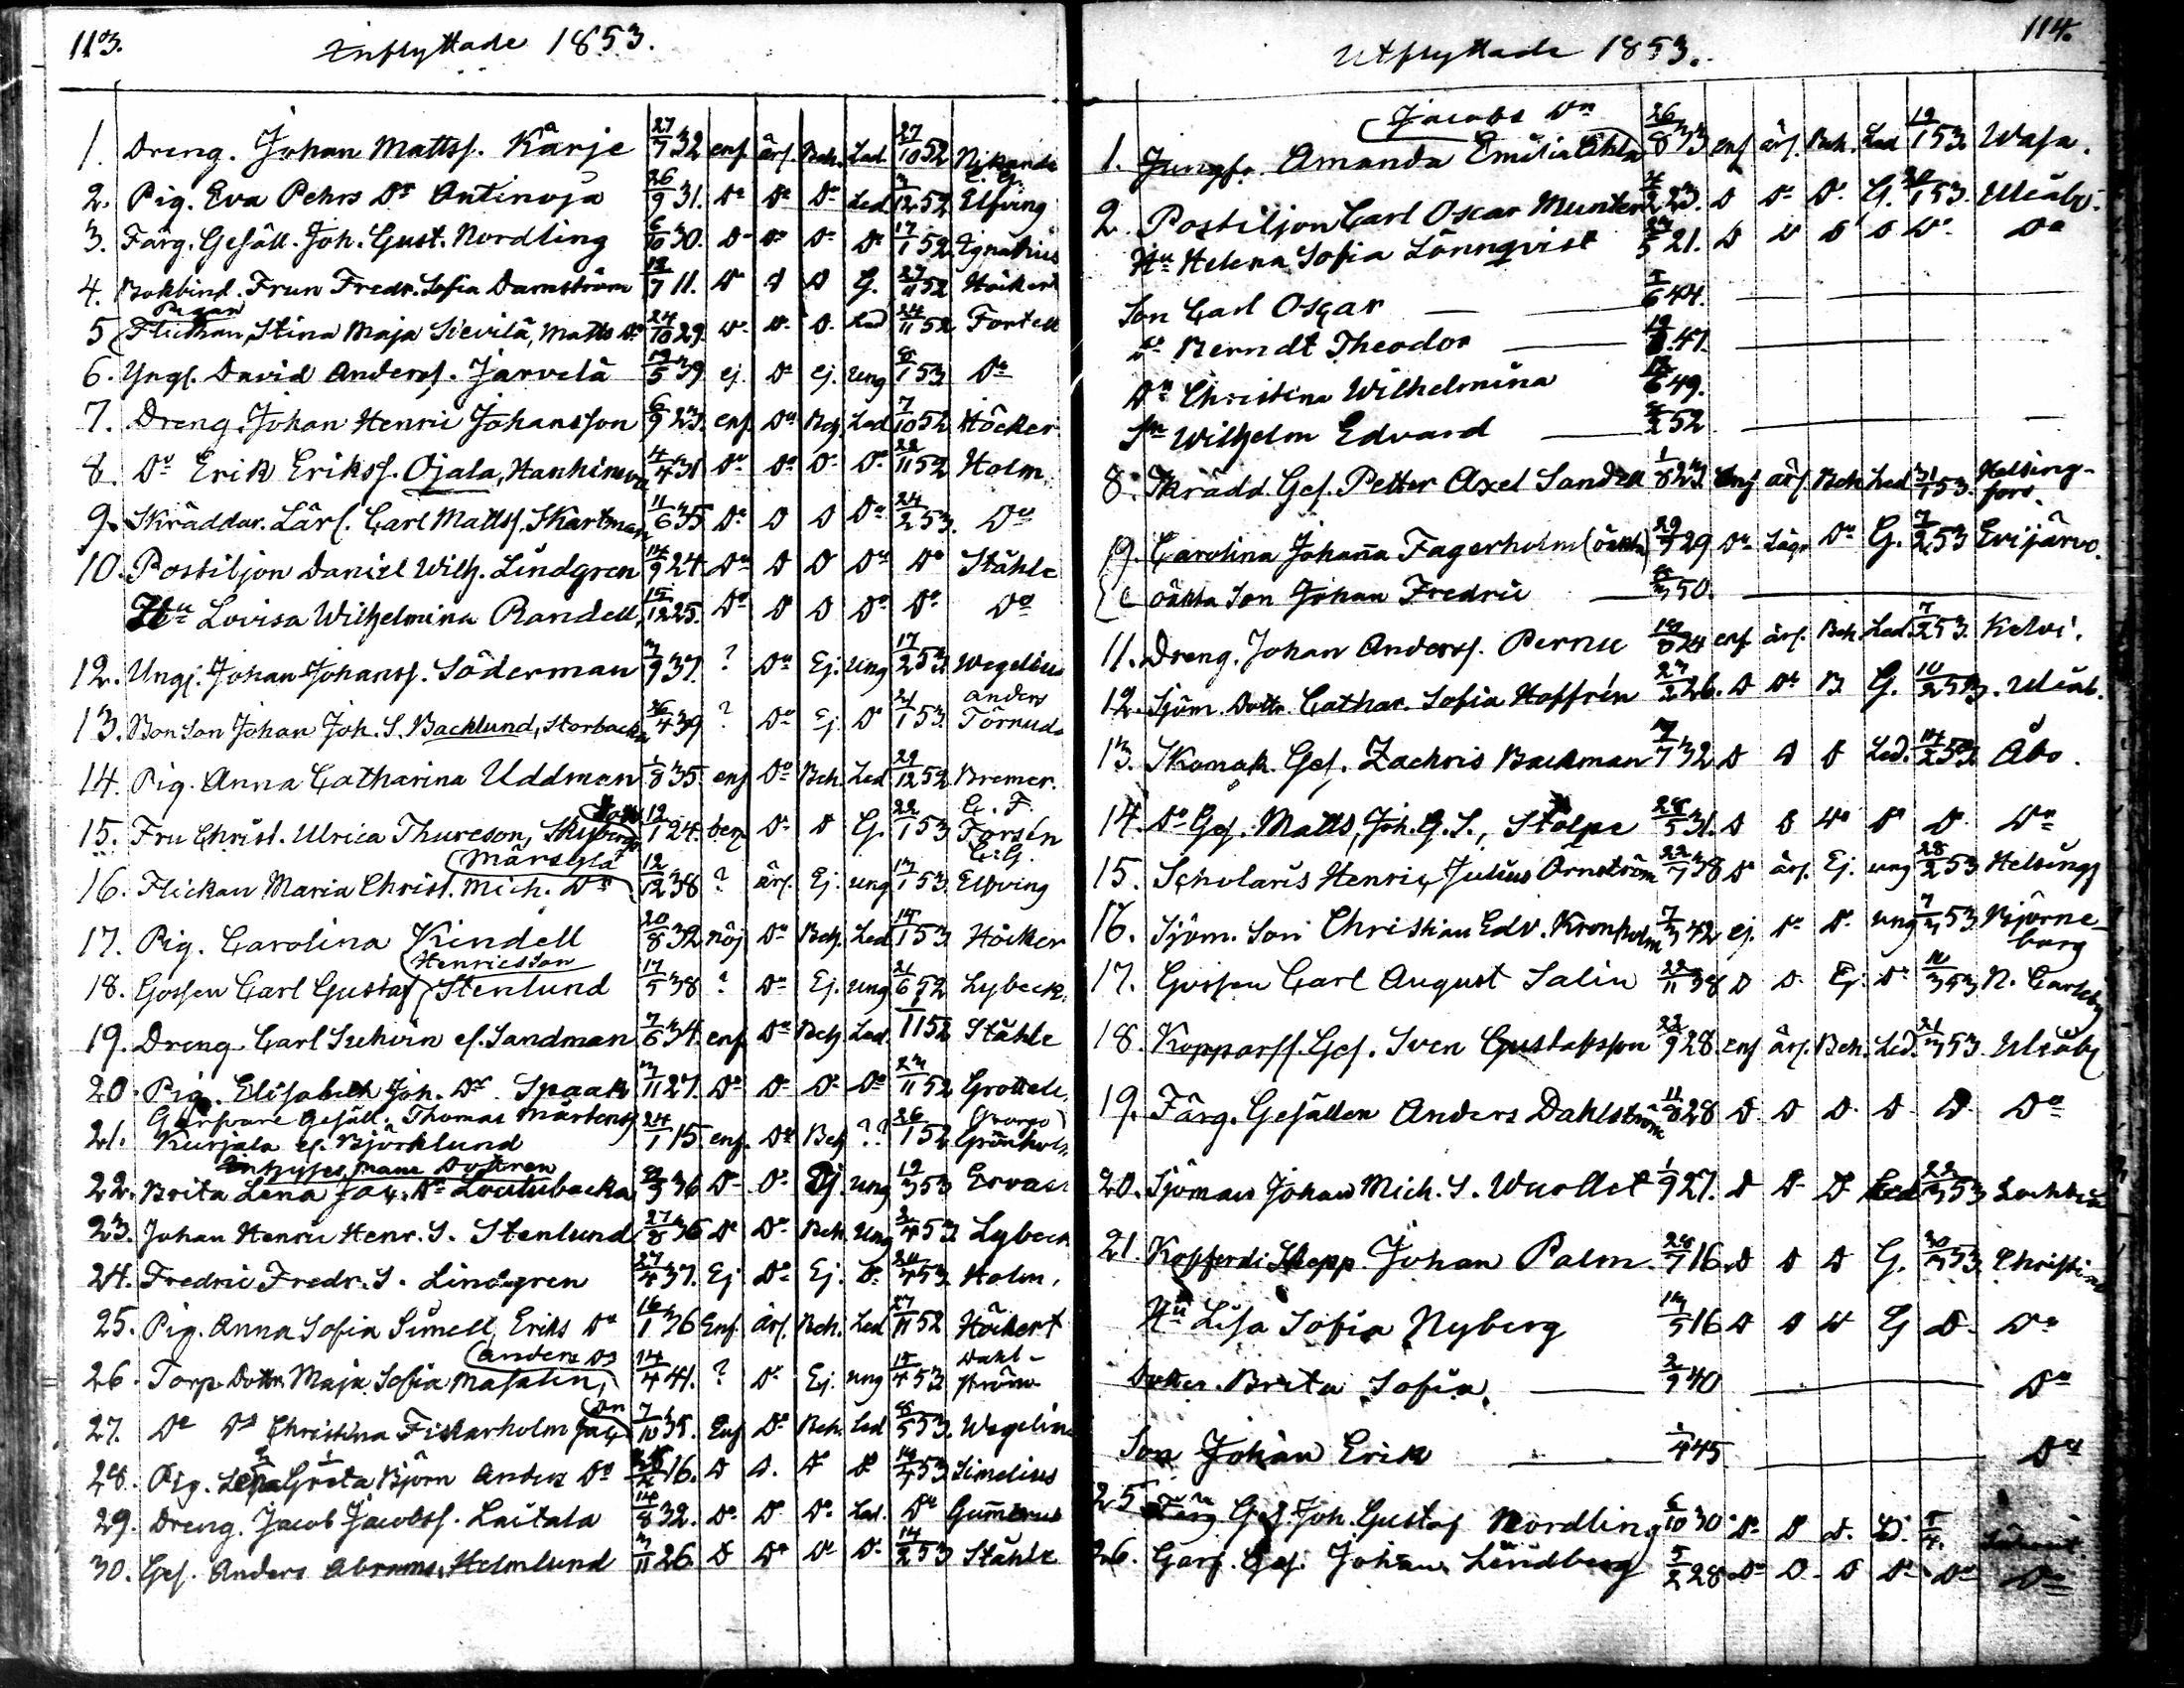 113.
Inflyttade 1853.
1. Dreng. Johan Mattss. Karje 27/7 32 enf ärf. Beh. Led 27/10 52
2. Pig. Eva Pehrs Dr Antinoja 26/9 31. Do Do Do Led 3/12 52 Elfving
3. Färg. Gesäll. Joh. Gust. Nordling 6/10 30. Do Do Do Do 17/1 52 Ignatius
4. Bokbind. Frun Fredr. Sofia Damström 12/7 11. Do D D G. 27/11 52 Höckert
Pigan
5 Stina Maja Sievilä, Matts Dr 24/10 29. Do Do D. Led 24/11 52 Fortell
6. Yngl. David Anderss. Jarvelä 19/5 39 ej. Do ej. ung 8/1 53 Do
7. Dreng. Johan Henric Johansson 6/9 23. enf. Do Beh. Led 7/10 52 Höcker
8. Do Erik Erikss. Ojala, 4/4 31 Do Do Do Do 22/11 52 Holm,
9. Skräddar. Lärl. Carl Mattss. Skartman 11/6 35 Do D D Do 24/2 53. Do
10. Postiljon Daniel Wilh. Lindgren 14/9 24. Do D D Do Do Ståhle
Hu Lovisa Wilhelmina Randell, 15/12 25. Do D D Do Do Do
12. Yngl. Johan Johanss. Söderman 3/9 37. ? Do Ej. ung 17/2 53. Wegelius
Anders
13. Bon Son Johan Joh. S. Backlund, Storbacka 26/4 39 ? Do Ej. Do 21/1 53. Törnudd
14. Pig. Anna Catharina Uddman 1/8 35. enf Do Beh. Led 29/12 52 Bremer.
G. F.
15. Fru Christ. Ulrica Thureson, 12/1 24. Do D G. 22/1 53 Forsén
C. G.
16. Flickan Maria Christ. Mich. Dr 12/12 38 ? ärf. Ej. ung 13/1 53. Elfving
17. Pig. Carolina Kindell 20/8 32 nöj Do Beh. Led 14/1 53. Höcker
Henricsson
18. Gossen Carl Gustaf Stenlund 17/5 38 ? Do Ej. ung 21/6 52 Lybeck,
19. Dreng. Carl ef. Sandman 7/6 34. enf. Do Beh. Led. 1152 Ståhle
20. Pig. Elisabeth Joh. Dr Spaak 3/11 27. Do Do Do Do 23/11 52
Garfvare Gesäll. Thomas Mårtenss
21. Kurjala ef. Björklund 24/1 15. enf. Do Beh ?? 26/1 52 Grönholm
Dottren
22. Brita Lena Jac. Dr 36 Do Do Ej. ung 12/3 53
23. Johan Henric Henr. S. Stenlund 27/8 36 Do Do Beh. Ung 2/4 53. Lybeck
24. Fredric Fredr. S. Lindgren 27/4 37. Ej Do Ej. Do 20/4 53. Holm,
25. Pig. Anna Sofia Simell, Eriks Dr 16/1 36 Enf. ärf. Beh. Led 27/11 52 Höckert
Anders Dr Dahl-
26. Torp. Dottr. Maja Sofia Masalin, 14/4 41. ? Do Ej. ung 15/4 53. ström
27. Do Do Christina Fiskarholm Jac. Dr 7/10 35. Enf Do Beh. Led 8/5 53. Wegelius
28. Pig. Lena Greta Björn Anders Dr 16. D D. D D 14/4 53 Simelius
29. Dreng. Jacob Jacobss. Laitala 14/8 32. Do D Do Led. Do Gummerus
30. Ges. Anders Abrams. Holmlund 3/11 26. D Do Do Do 14/2 53 Ståhle
114.
Utflyttade 1853.
Jacobs Dr
1. Jungfr. Amanda Emilia 26/8 33 enf ärf. Beh. Led 12/1 53. Wasa.
2. Postiljon Carl Oscar Munter 4/2 23. D Do Do G. 20/1 53. Uleåb.
Hu Helena Sofia Lönnqvist 5 21. D D D D Do Do
Son Carl Oscar 1/6 44.
Do Berndt Theodor 47.
Dr Christina Wilhelmina 12/6 49.
Sn Wilhelm Edvard 52
8. Skrädd. Ges. Petter Axel Sandell 1/8 23. enf ärf. Beh Led 31/1 53. Helsing-
fors.
9. Carolina Johanna Fagerholm 29/9 29 Do Do G. 7/2 53 Evijärvi.
oäkta Son Johan Fredric 8/3 50.
11. Dreng. Johan Anderss. Pernu 18/8 24 enf ärf. Beh. Led. 7/2 53. Kelvi.
12. Sjöm. Dottr. Cathar. Sofia Hoffrén 23/2 26. D Do B. G. 10/2 53. Uleåb.
13. Skomak. Ges. Zachris Backman 7 32 D D D Led. 14/2 53. Åbo.
14. Do Ges. Matts, Joh. G. S., Stolpe 28/5 31. D D Do D D Do
15. Scholaris Henric Julius Arnström 22/7 38 D ärf. Ej. ung 28/2 53 Helsingf
16. Sjöm. Son Christian Edv. Kronholm 7/3 42 ej. Do Do ung 7/3 53. Björne-
borg
17. Gossen Carl August Salin 22/11 38 D D. Ej. Do 11/3 53. N. Carleby
18. Kopparsl. Ges. Sven Gustafsson 22/9 28. enf ärf. Beh. Led. 21/3 53. Uleåb
19. Färg. Gesällen Anders Dahlström 11/8 28 D D D. D D Do
20. Sjöman Johan Mich. S. Wuollet 1/9 27. D D D Led 22/3 53.
21. Kofferdi Skepp. Johan Palm 28/7 16. D D D G. 30/3 53. Christine
Hu Lisa Sofia Nyberg 13/5 16 D D D G D. Do
Dotter. Brita Sofia 2/9 40 Do
Son Johan Erik 1/4 45 Do
25 Färg Ges. Joh. Gustaf Nordling 6/10 30 D. D D. D. 5/4.
26. Garf. Ges. Johan Lindberg 5/2 28 Do D D Do Do Do